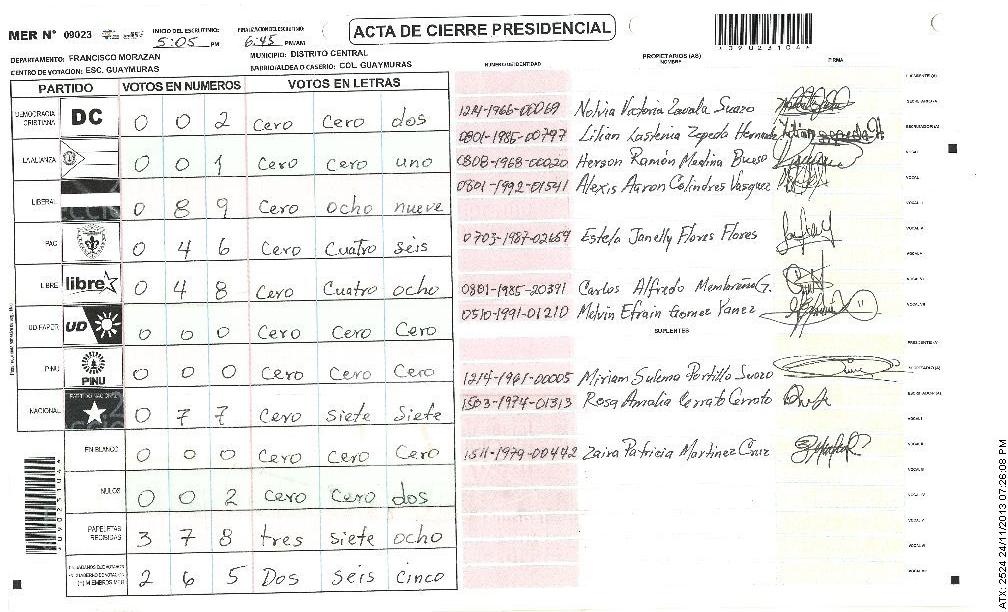 MER Nº 09023
INICIO DEL ESCRUTINIO:
5:05 PM
FINALIZACION DEL ESCRUTINIO:
6:45 PM/AM
ACTA DE CIERRE PRESIDENCIAL
*09023104*
DEPARTAMENTO: FRANCISCO MORAZAN
MUNICIPIO: DISTRITO CENTRAL
CENTRO DE VOTACION: ESC. GUAYMURAS
BARRIO/ALDEA O CASERIO: COL. GUAYMURAS
NUMERO DE IDENTIDAD
PROPIETARIOS (AS)
NOMBRE
FIRMA
PARTIDO VOTOS EN NUMEROS VOTOS EN LETRAS
DEMOCRACIA CRISTIANA DC 0 0 2 cero cero dos
LA ALIANZA 0 0 1 cero cero uno
LIBERAL 0 8 9 cero ocho nueve
PAC 0 4 6 cero cuatro seis
LIBRE libre 0 4 8 cero cuatro ocho
UD-FAPER UD 0 0 0 cero cero cero
PINU PINU 0 0 0 cero cero cero
NACIONAL 0 7 7 cero siete siete
EN BLANCO 0 0 0 cero cero cero
NULOS 0 0 2 cero cero dos
PAPELETAS RECIBIDAS 3 7 8 tres siete ocho
2 6 5 Dos seis cinco
1214-1966-00069 Nolvia Victoria Zavala Suazo
0801-1985-00797 Lilian Lastenia Zepeda
0808-1968-00020 Herson Ramón Medina Bueso
0801-1992-01541 Alexis Aaron Colindres Vasquez
0703-1987-02659 Estela Janelly Flores Flores
0801-1985-20391 Carlos Alfredo Membreño G.
0510-1991-01210 Melvin Efrain Gomez Yanez
SUPLENTES
1214-1961-00005 Miriam Sulema Portillo Suazo
1503-1974-01313 Rosa Amalia Cerrato Cerrato
1511-1979-00442 Zaira Patricia Martinez Cruz
ATX: 2524 24/11/2013 07:26:08 PM